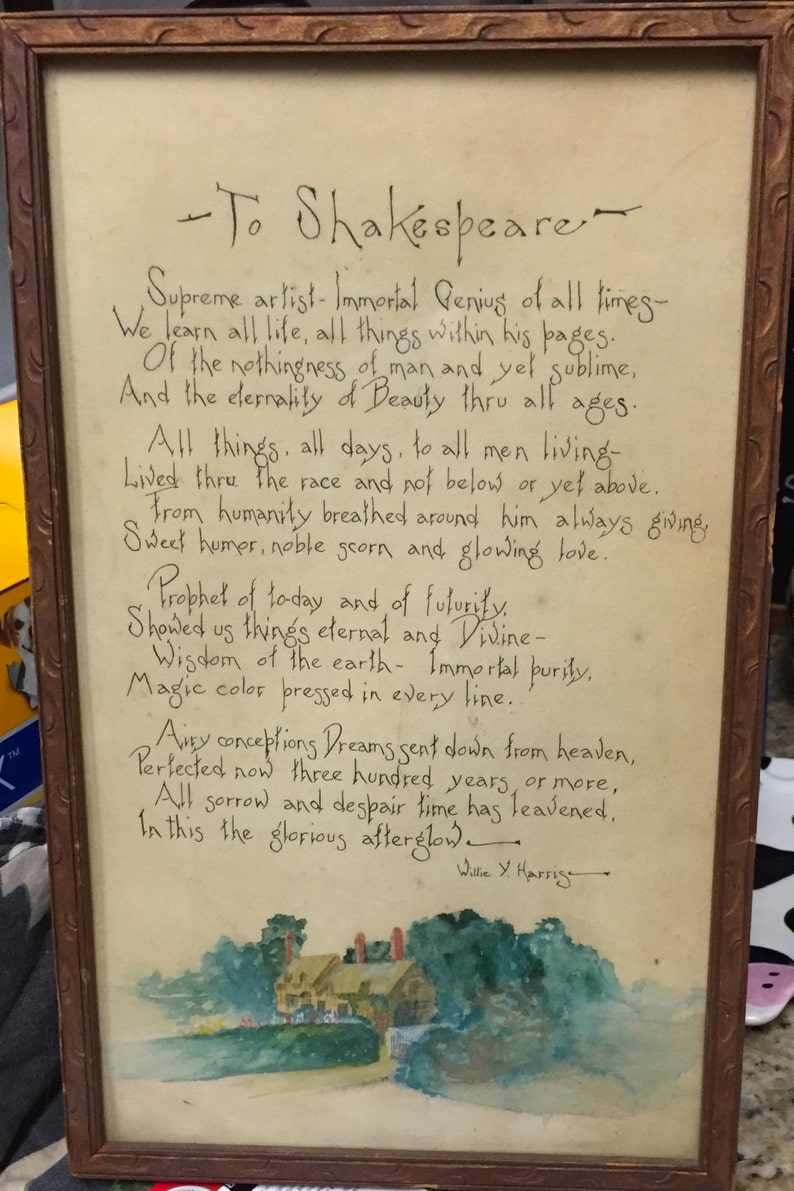 -To Shakespeare-
Supreme artist- Immortal Genius of all times-
We learn all life, all things within his pages.
Of the nothingness of man and yet sublime,
And the eternality of Beauty thru all ages.
All things, all days, to all men living-
Lived thru the race and not below or yet above.
From humanity breathed around him always giving,
Sweet humor, noble scorn and glowing love.
Prophet of to-day and of futurity,
Showed us things eternal and Divine-
Wisdom of the earth- Immortal purity,
Magic color pressed in every line.
Airy conceptions Dreams sent down from heaven,
Perfected now three hundred years or more,
All sorrow and despair time has leavened,
In this the glorious afterglow
Willie Y. Harris
TM